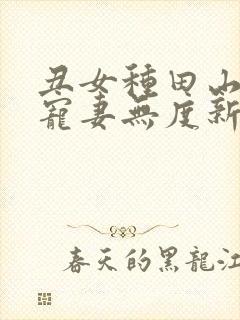 丑女種田山
寵妻無度新
春天的黑龍江